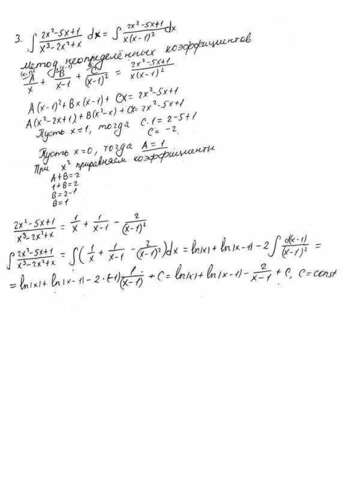 3. ∫ (2x²-5x+1)/(x³-2x²+x) dx = ∫ (2x²-5x+1)/(x(x-1)²) dx
Метод неопределённых коэффициентов
A/x + B/(x-1) + C/(x-1)² = (2x²-5x+1)/(x(x-1)²)
A(x-1)²+Bx(x-1)+Cx=2x²-5x+1
A(x²-2x+1)+B(x²-x)+Cx=2x²-5x+1
Пусть x=1, тогда C·1=2-5+1
C=-2
Пусть x=0, тогда A=1
При x² приравняем коэффициенты
A+B=2
1+B=2
B=2-1
B=1
(2x²-5x+1)/(x³-2x²+x) = 1/x + 1/(x-1) - 2/(x-1)²
∫ (2x²-5x+1)/(x³-2x²+x) = ∫ (1/x + 1/(x-1) - 2/(x-1)²)dx = ln|x|+ln|x-1|-2∫ d(x-1)/(x-1)² =
= ln|x|+ln|x-1|-2·(-1) 1/(x-1) + C = ln|x|+ln|x-1| - 2/(x-1) + C, C=const